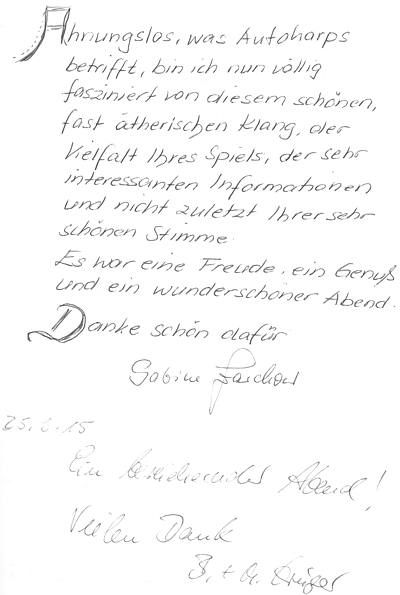 Ahnungslos, was Autoharps
betrifft, bin ich nun völlig
fasziniert von diesem schönen,
fast ätherischen Klang, der
Vielfalt Ihres Spiels, der sehr
interessanten Informationen
und nicht zuletzt Ihrer sehr
schönen Stimme.
Es war eine Freude, ein Genuß
und ein wunderschöner Abend.
Danke schön dafür
Sabine
25.2.15
Ein bereichernder Abend!
Vielen Dank
B. + A. Krüger